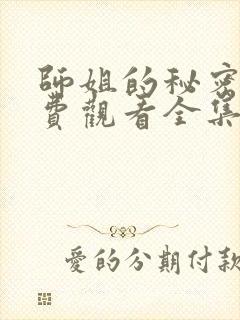 師姐的秘密
費觀看全集
愛的分期付款